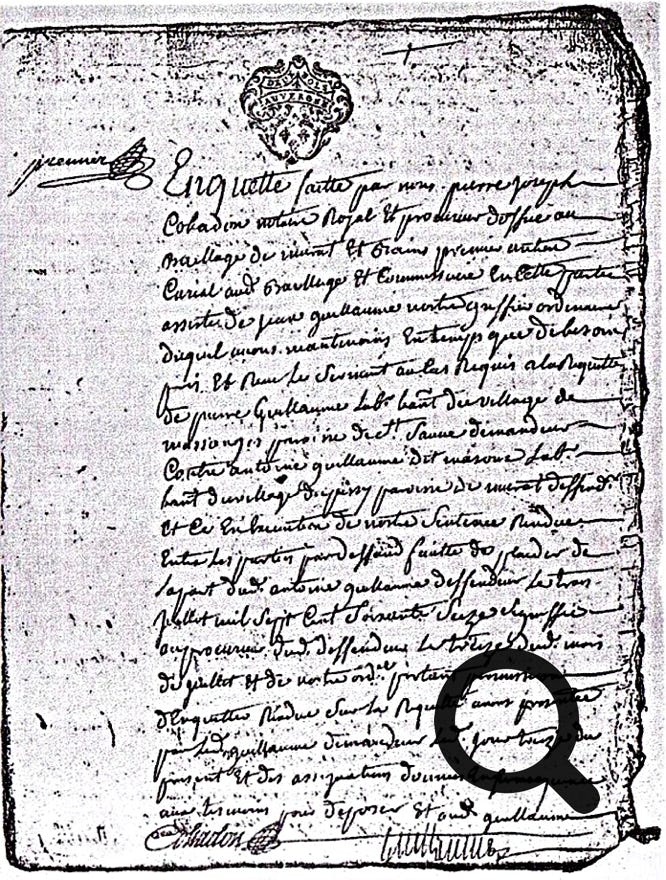 premier
Enquette faitte par nous pierre joseph
Cohadon notaire Royal Et procureur doffice au
Baillage de murat Et
Curial aud. Baillage Et Commissaire En Cette partie
assisté de jean guillaume nottre greffier ordinaire
duquel avons Entemps que de besoin
pris Et Reçu Le Serment au Cas Requis a la Requette
de pierre Guillaume Lab. hant du village de
paroisse de St. Sauve demandeur
Contre antoine guillaume dit Lab.
hant du village paroisse de murat deffend.
Et Ce En Execution de nottre Sentence Rendue
Entre Les parties par deffaud faitte de plaider de
la part dud. antoine guillaume deffendeur Le trois
juillet mil Sept Cent Soixante Seize
au procureur dud. deffendeur Le treize dud. mois
de juillet Et de nottre ord. portant permission
dEnquetter Rendue Sur La Requette a nous presentée
par Led. guillaume demandeur Led. jour treize du
present Et des assignations données En Consequence
aux temoins pour deposer Et aud. guillaume
Cohadon guillaume